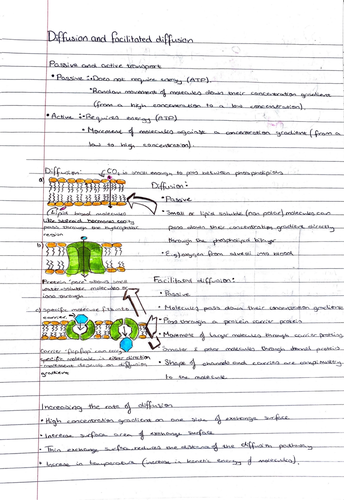 Diffusion and facilitated diffusion
Passive and active transport
• Passive :• Does not require energy (ATP).
• Random movement of molecules down their concentration gradient
(from a high concentration to a low concentration).
• Active :• Requires energy (ATP)
• Movement of molecules against a concentration gradient (from a
low to high concentration).
Diffusion:
CO₂ is small enough to pass between phospholipids
a)
Lipid based molecules
like steroid hormones easily
pass through the hydrophobic
region
Diffusion:
• Passive
• Small or lipid soluble (non polar) molecules can
pass down their concentration gradient directly
through the phospholipid bilayer
• E.g) oxygen from alveoli into blood
b)
Protein "pore" allows
water-soluble molecules or
ions through
c) specific molecule fits into
carrier
Carrier "flipflops" can carry
specific molecule in either direction
- movement depends on diffusion
gradient
Facilitated diffusion:
• Passive
• Molecules pass down their concentration gradient
• Pass through a protein carrier protein
• Movement of large molecules through carrier proteins
Smaller & polar molecules through channel proteins
• Shape of channels and carriers are complimentary
to the molecule.
Increasing the rate of diffusion
• High concentration gradient on one side of exchange surface
• Increase surface area of exchange surface
• Thin exchange surface reduces the distance of the diffusion pathway
• Increase in temperature (increase in kinetic energy of molecules).